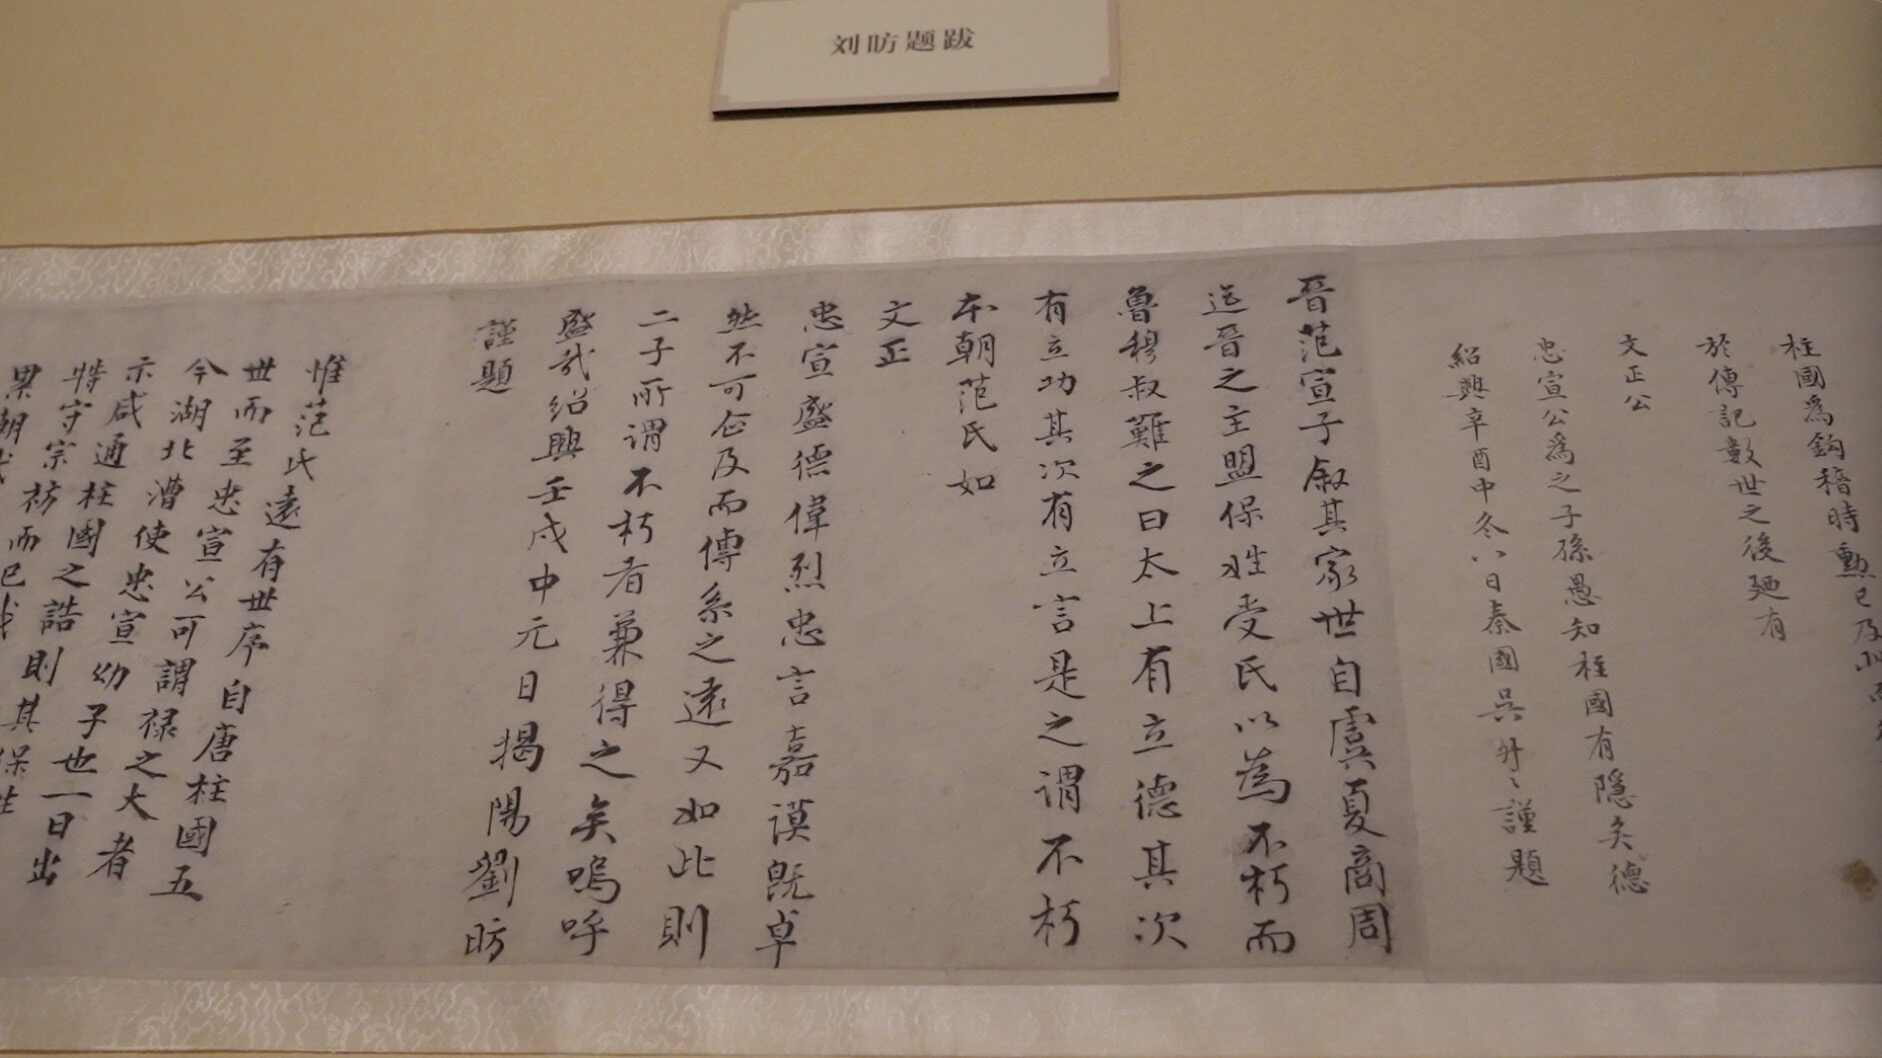 刘昉题跋
柱國為鈎稽時勲已及
於傳記數世之後廼有
文正公
忠宣公為之子孫愚知柱國有隱矣德
紹興辛酉中冬八日秦國吳升〻謹題
晉范宣子敘其家世自虞夏商周
迄晉之主盟保姓受氏以為不朽而
魯穆叔難之曰太上有立德其次
有立功其次有立言是之謂不朽
本朝范氏如
文正
忠宣盛德偉烈忠言嘉謨既卓
然不可企及而傳系之遠又如此則
二子所謂不朽者兼得之矣嗚呼
盛哉紹興壬戌中元日揭陽劉昉
謹題
惟范氏遠有世序自唐柱國五
世而至忠宣公可謂祿之大者
今湖北漕使忠宣幼子也一日出
示咸通柱國之誥則其保姓
特守宗祊而已哉